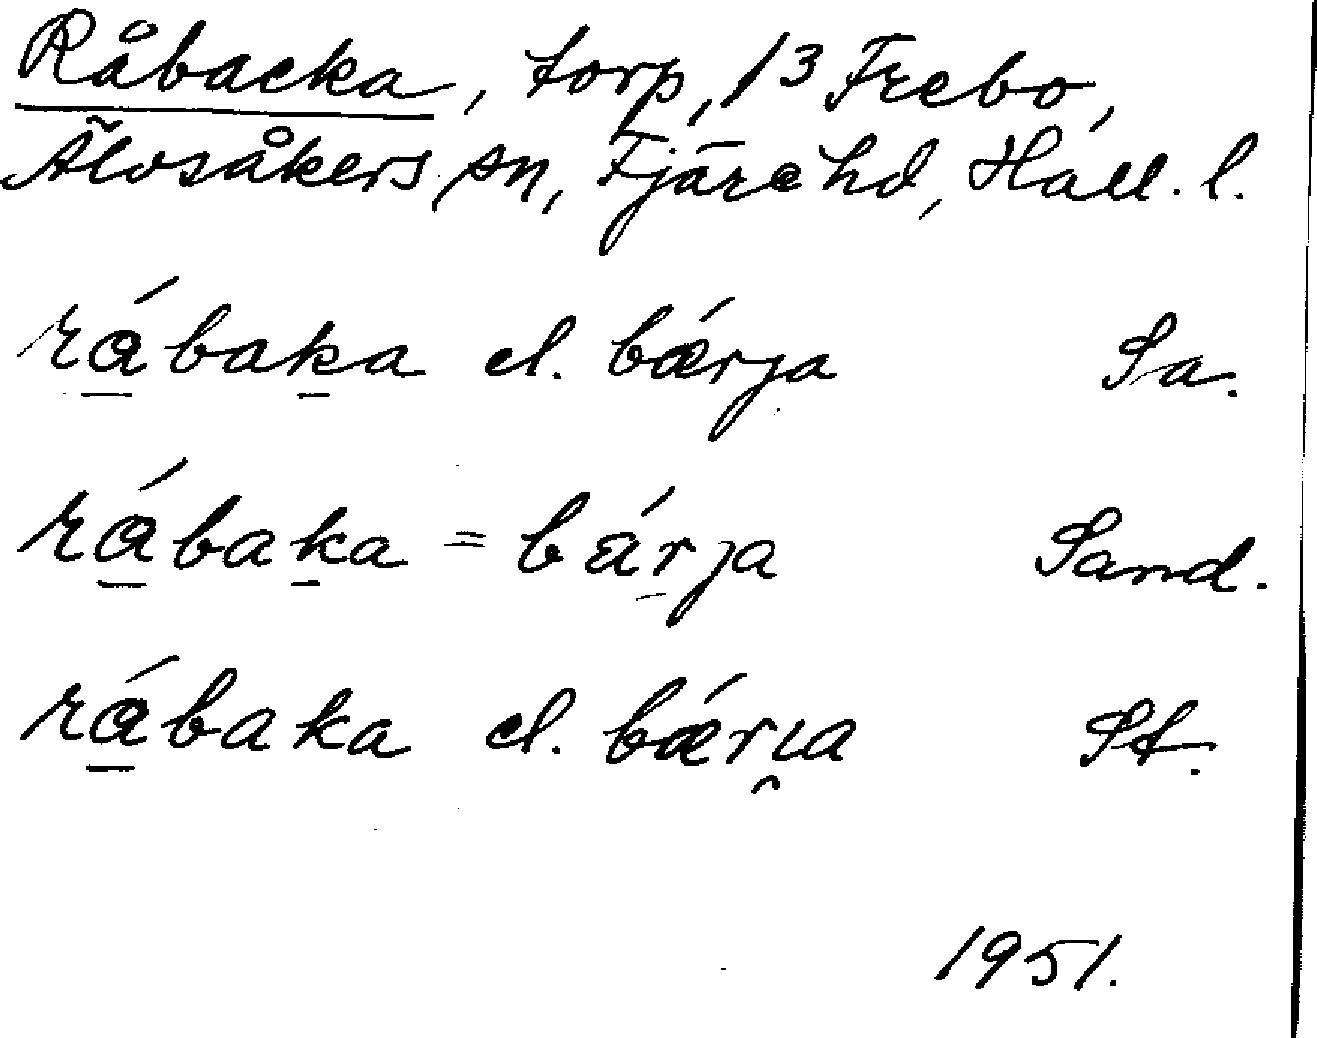 Råbacka, torp, 1³ Frebo,
Älvsåkers sn, Fjäre hd, Hall. l.
rá̱baḵa el. bǽrja Sa.
rá̱baḵa = bár̠ja Sand.
rá̱baka el. bǽri̯a St.
1951.